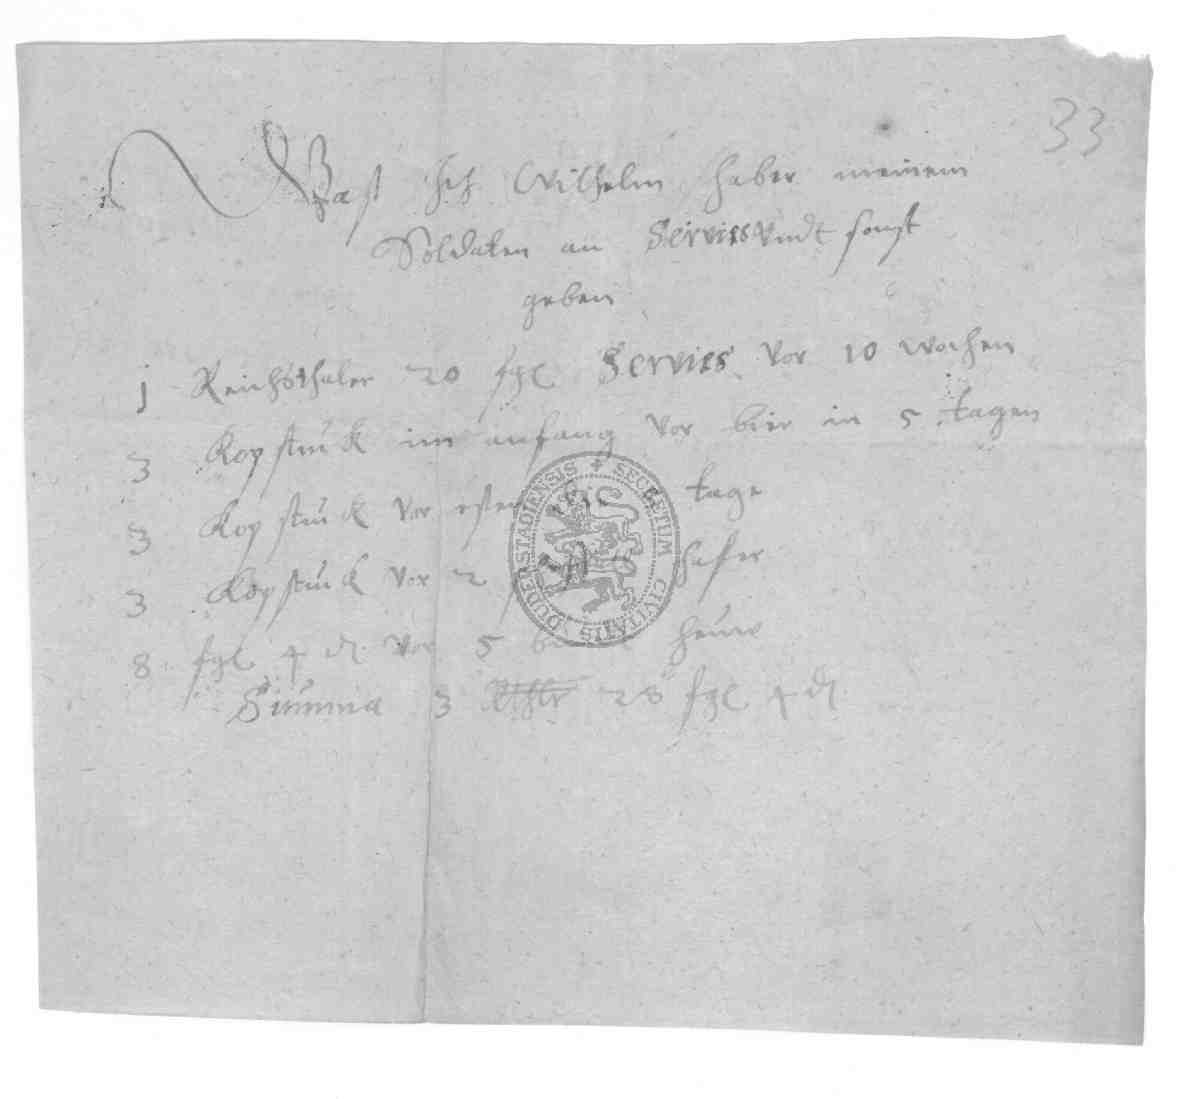 33
Waß Ich Wilhelm Haber meinem
Soldaten an Serviss Vndt sonst
geben
j Reichsthaler 20 sgl Serviss vor 10 wochen
3 Kopstuck im anfang vor bier in 5 tagen
3 Kopstuck vor tage
3 Kopstuck vor 2 hafer
8 sgl 4 d vor 5 heuw
Summa 3 28 sgl 4 d
SECRETUM CIVITATIS DUDERSTADIENSIS